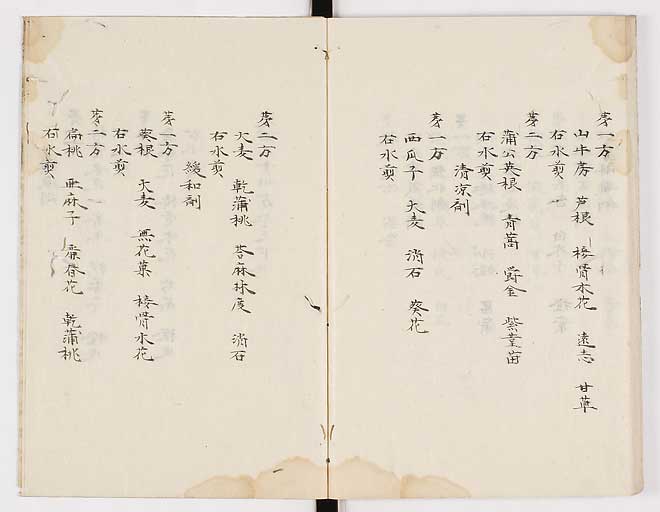 㐧一方
山牛蒡 芦根 接骨木花 遠志 甘草
右水煎
㐧二方
蒲公英根 青蒿 欝金 紫菫苗
右水煎
清凉剤
㐧一方
西瓜子 大麦 消石 葵花
右水煎
㐧二方
大麦 乾蒲桃 答麻林度 消石
右水煎
緩和剤
㐧一方
葵根 大麦 無花菓 接骨木花
右水煎
㐧二方
扁桃 亜麻子 麗春花 乾蒲桃
右水煎